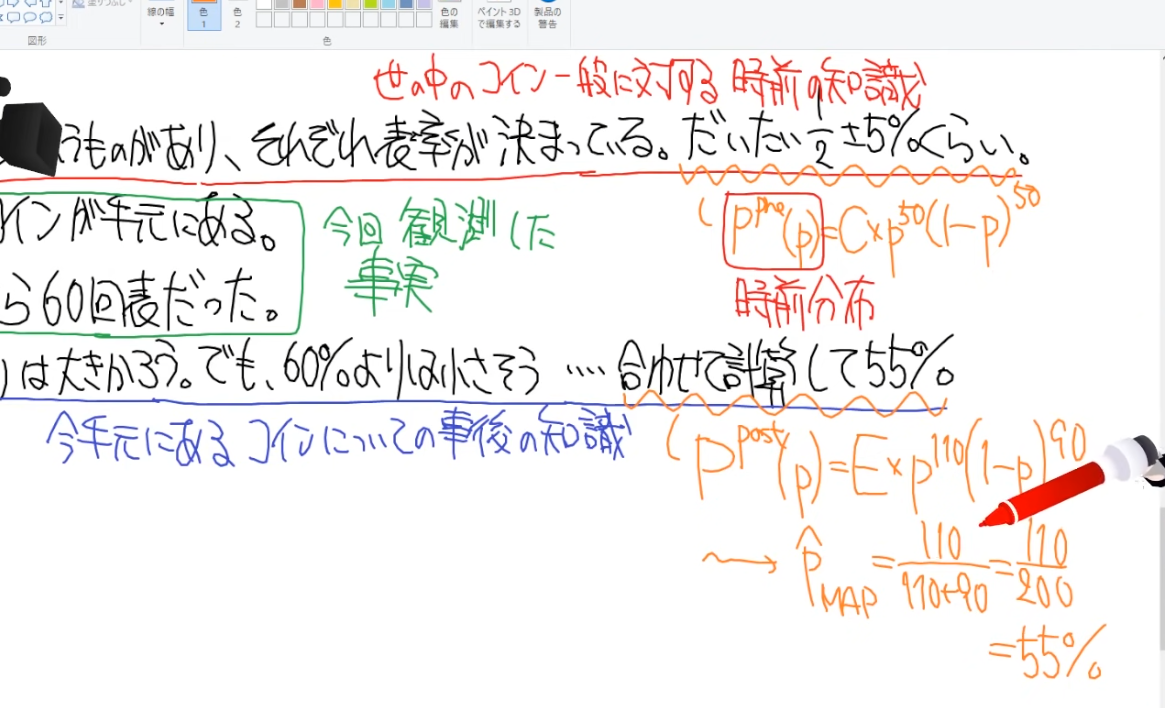 塗りつぶし
図形
線の幅
色 1
色 2
色の編集
ペイント3Dで編集する
製品の警告
色
世の中のコイン一般に対する時前の知識
うものがあり、それぞれ表率が決まっている。だいたい 1/2 ±5%くらい。
インが手元にある。
今回 観測した
( p^pre(p)=C×p^50(1-p)^50
ら60回表だった。
事実
時前分布
)は大きかろう。でも、60%よりは小さそう ‥‥ 合わせて計算して55%。
今手元にあるコインについての事後の知識
( p^post(p)=E×p^110(1-p)^90
⇝ p̂MAP = 110/(110+90) = 110/200
=55%